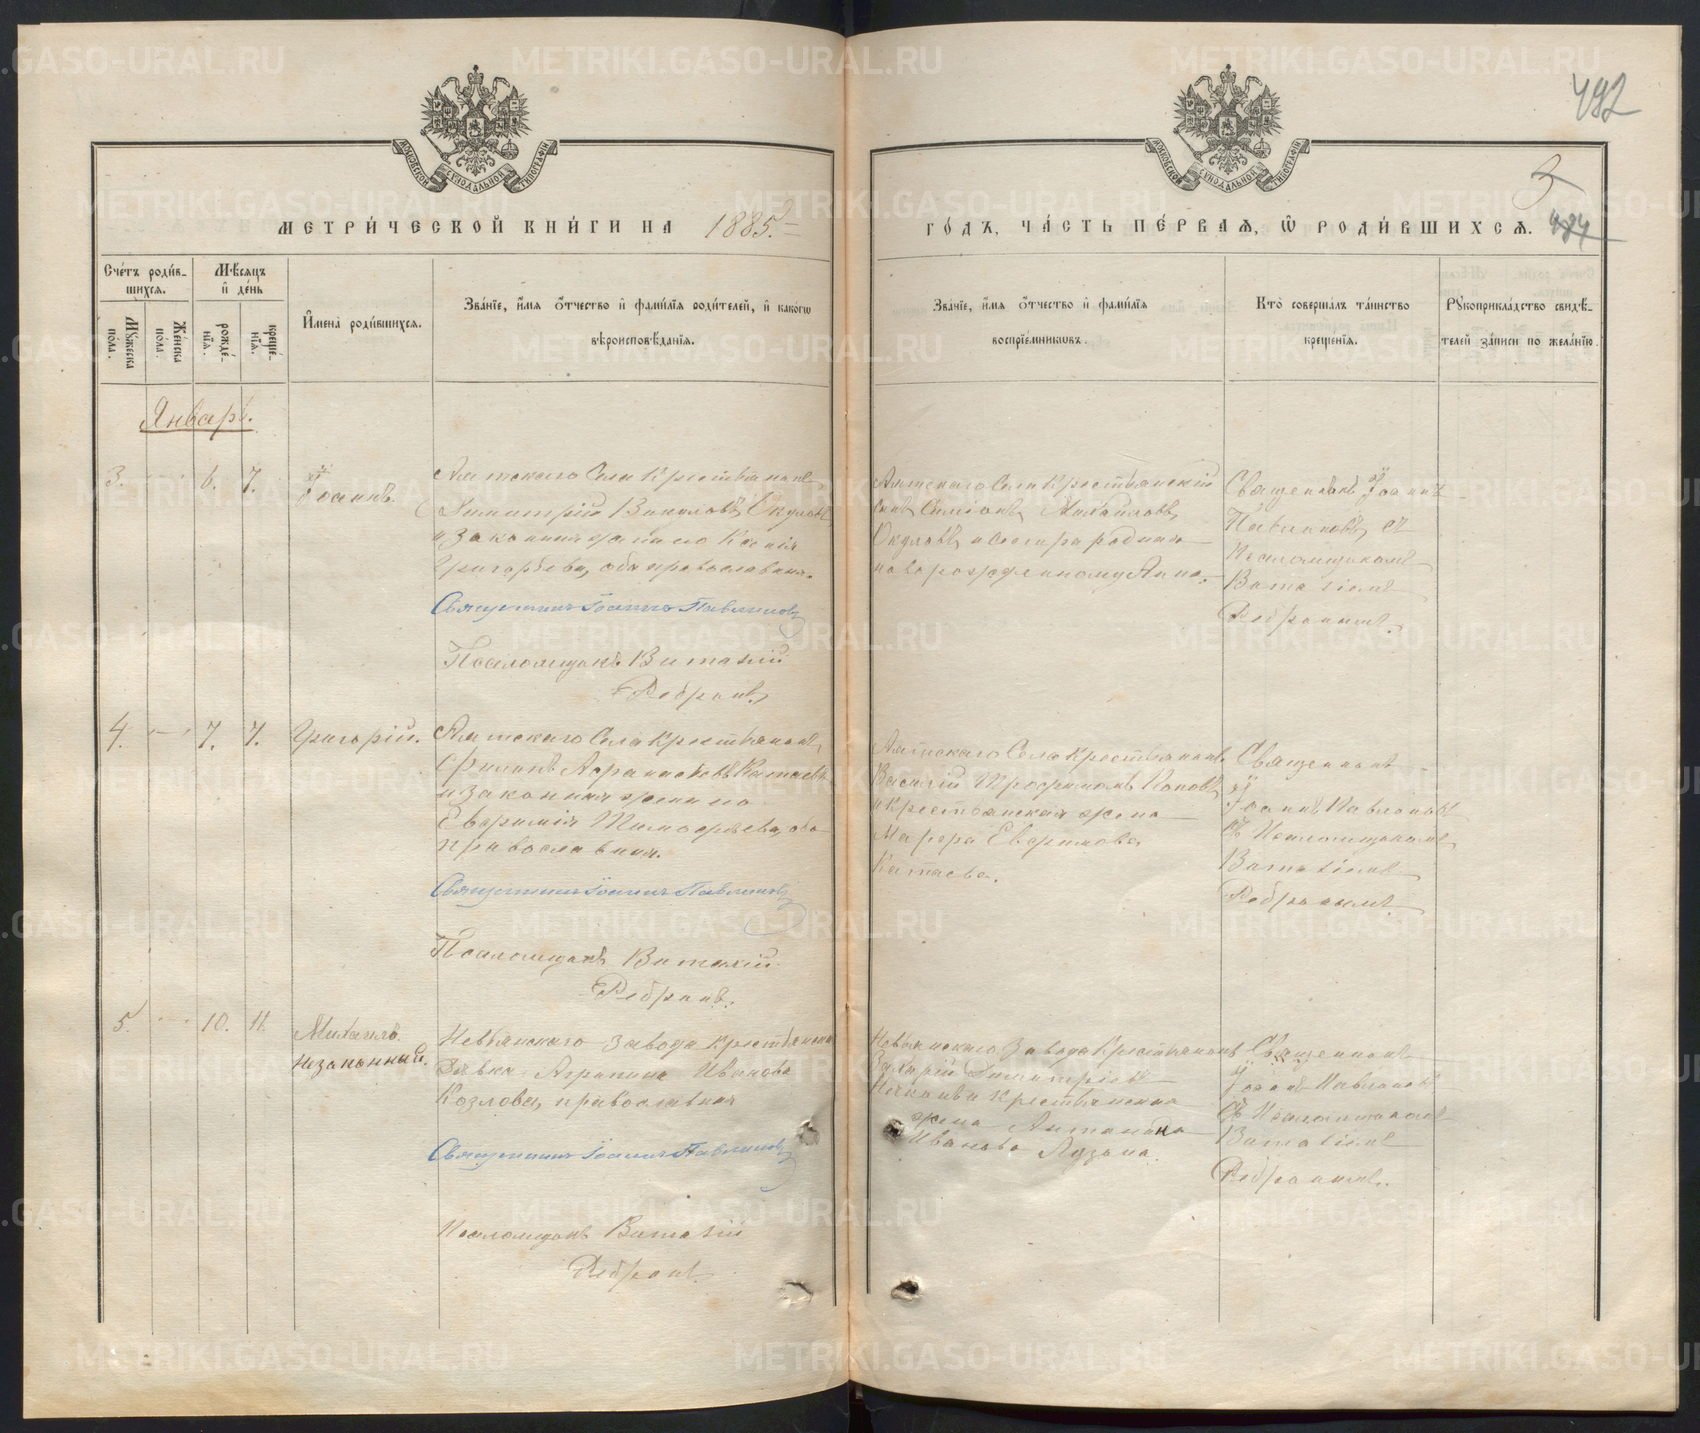 492
3
484
МОСКОВСКОЙ СѴНОДАЛЬНОЙ ТИПОГРАФІИ
МОСКОВСКОЙ СѴНОДАЛЬНОЙ ТИПОГРАФІИ
МЕТРИ́ЧЕСКОЙ КНИ́ГИ НА 1885
ГО́ДЪ, ЧА́СТЬ ПЕ́РВАѦ, Ѽ РОДИ́ВШИХСѦ.
Сче́тъ роди́в-
шихсѧ.
Мѣ́сѧцъ
и҆ де́нь
Мꙋжеска
по́ла.
Же́нска
по́ла.
рожде́-
нїѧ.
креще́-
нїѧ.
И҆мена̀ роди́вшихсѧ.
Зва́нїе, и҆́мѧ ѻ҆́тчество и҆ фами́лїѧ роди́телей, и҆ како́гѡ
вѣроисповѣ́данїѧ.
Зва́нїе, и҆́мѧ ѻ҆́тчество и҆ фами́лїѧ
воспрїе́мникѡвъ.
Кто̀ соверша́лъ та́инство
креще́нїѧ.
Рꙋкоприкла́дство свидѣ́-
телей за́писи по жела́нїю.
Январь.
3. 6. 7. Іоаннъ.
Аятскаго Села Крестьянинъ
Димитрій Вакуловъ Окуловъ
и законная жена его Ксенія
Григорьева, оба православные.
Священникъ Іоаннъ Павлиновъ
Псаломщикъ Виталій
Ребринъ.
Аятскаго Села Крестьянскій
сынъ Симеонъ Михайловъ
Окуловъ и сестра родная
новорожденному Анна.
Священникъ Іоаннъ
Павлиновъ съ
Псаломщикомъ
Виталіемъ
4. 7. 7. Григорій.
Аятскаго Села Крестьянинъ
Филиппъ Катаевъ
и законная жена его
Евфимія Тимофѣева, оба
православные.
Священникъ Іоаннъ Павлиновъ
Псаломщикъ Виталій
Ребринъ.
Аятскаго Села Крестьянинъ
Василій Трофимовъ Поповъ
и Крестьянская жена
Марфа Евфимова
Катаева.
Священникъ
Іоаннъ Павлиновъ
съ Псаломщикомъ
Виталіемъ
5. 10. 11. Михаилъ
незаконный.
Невьянскаго завода Крестьянская
Дѣвка Агрипина Иванова
Козлова, православная
Священникъ Іоаннъ Павлиновъ
Псаломщикъ Виталій
Ребринъ.
Невьянскаго Завода Крестьянинъ
Димитріевъ
и Крестьянская
жена
Иванова
Священникъ
Іоаннъ Павлиновъ
съ Псаломщикомъ
Виталіемъ
METRIKI.GASO-URAL.RU